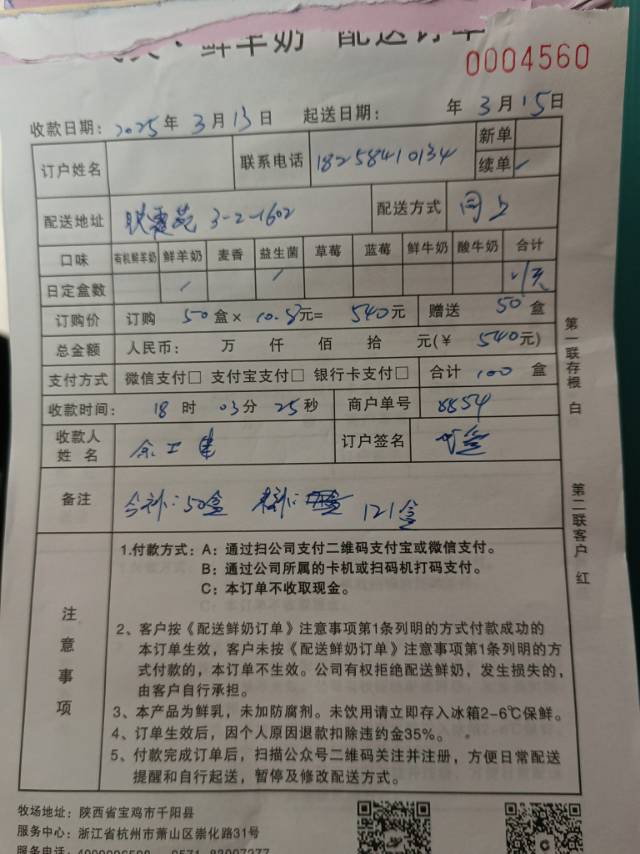 鲜羊奶 配送订单
0004560
收款日期: 2025年 3月13日 起送日期: 年 3月15日
订户姓名 联系电话 18258410134 新单
续单 ✓
配送地址 3-2-1602 配送方式 同上
口味 有机鲜羊奶 鲜羊奶 麦香 益生菌 草莓 蓝莓 鲜牛奶 酸牛奶 合计
日定盒数 ✓ ✓
订购价 订购 50盒× 10.8元= 540元 赠送 50盒
总金额 人民币: 万 仟 佰 拾 元(¥ 540元)
支付方式 微信支付□ 支付宝支付□ 银行卡支付□ 合计 100 盒
收款时间: 18时 03分 25秒 商户单号 8854
收款人
姓 名 订户签名
备注 50盒 121盒
注意事项
1.付款方式: A: 通过扫公司支付二维码支付宝或微信支付。
B: 通过公司所属的卡机或扫码机打码支付。
C: 本订单不收取现金。
2、客户按《配送鲜奶订单》注意事项第1条列明的方式付款成功的
本订单生效,客户未按《配送鲜奶订单》注意事项第1条列明的方
式付款的,本订单不生效。公司有权拒绝配送鲜奶,发生损失的,
由客户自行承担。
3、本产品为鲜乳,未加防腐剂。未饮用请立即存入冰箱2-6℃保鲜。
4、订单生效后,因个人原因退款扣除违约金35%。
5、付款完成订单后,扫描公众号二维码关注并注册,方便日常配送
提醒和自行起送,暂停及修改配送方式。
第一联存根 白
第二联客户 红
牧场地址: 陕西省宝鸡市千阳县
服务中心: 浙江省杭州市萧山区崇化路31号
服务电话: